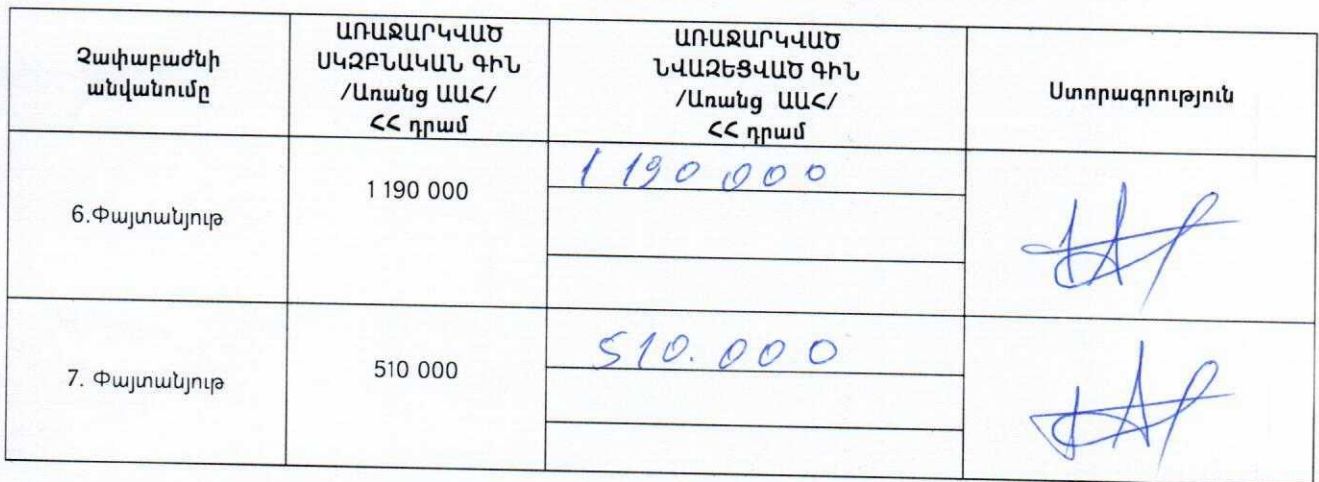 Չափաբաժնի
անվանումը
ԱՌԱՋԱՐԿՎԱԾ
ՍԿԶԲՆԱԿԱՆ ԳԻՆ
/Առանց ԱԱՀ/
ՀՀ դրամ
ԱՌԱՋԱՐԿՎԱԾ
ՆՎԱԶԵՑՎԱԾ ԳԻՆ
/Առանց ԱԱՀ/
ՀՀ դրամ
Ստորագրություն
6.Փայտանյութ
1 190 000
1 190 000
7. Փայտանյութ
510 000
510.000